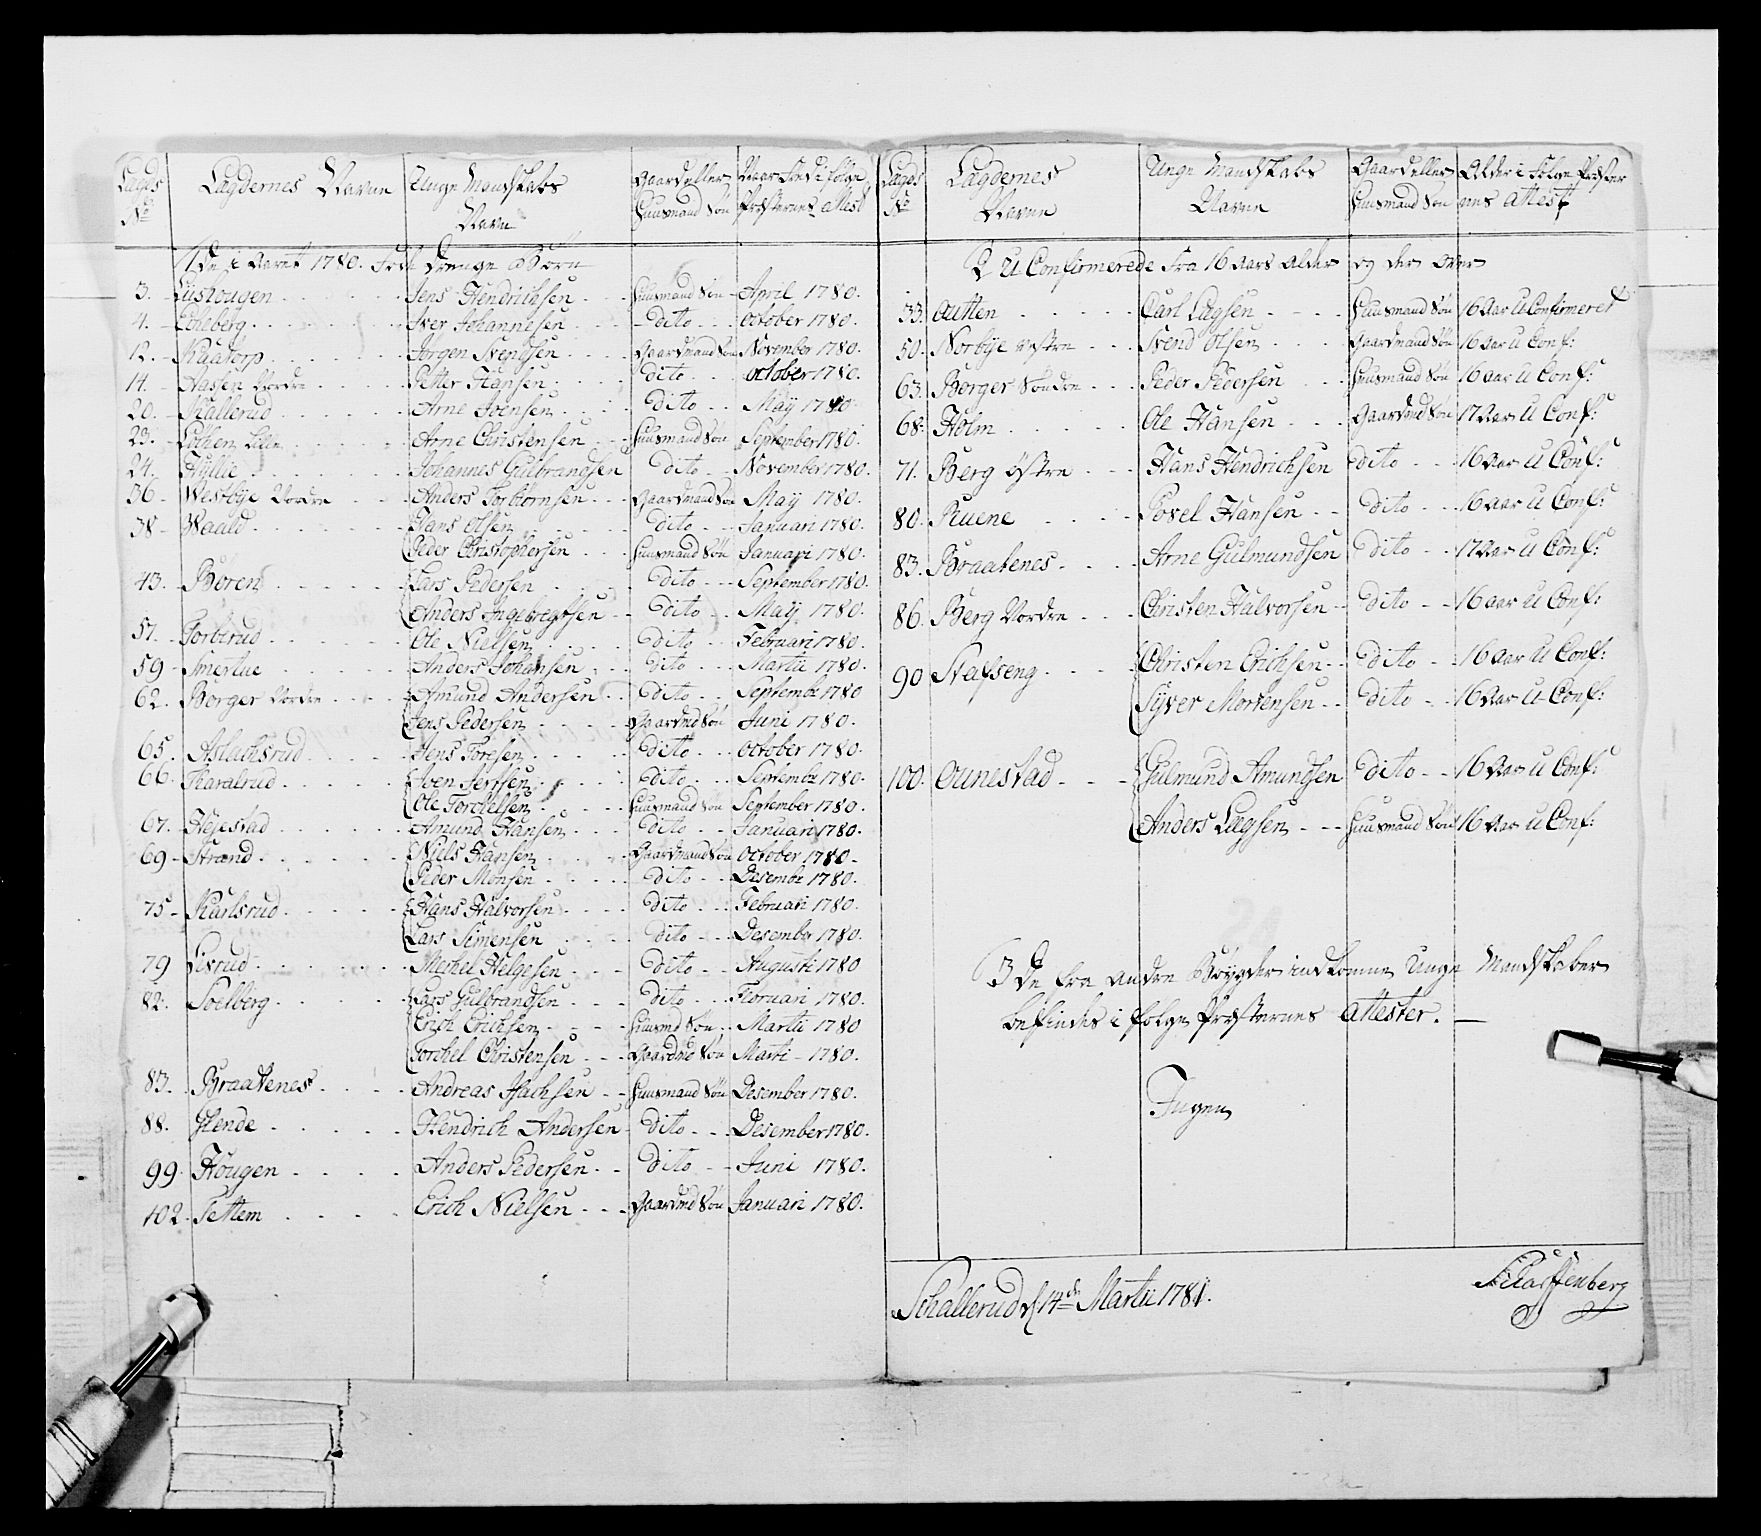 Lægds No
Lægdernes Navne
Unge Mandskabs Navne
Gaard eller Huusmand Søn
Naar Föd i følge Præsternes Attest
1 De i Aaret 1780. Föde Drenge Börn
3. Jens Hendrichsen Huusmand Søn April 1780.
4. Edteberg Iver Johannesen dito October 1780.
12. Jørgen Svendsen Gaardmand Søn November 1780.
14. Aasen Nordre Petter Hansen dito October 1780.
20. Kallerud Arne Joensen dito May 1780.
23. Lochen Lille Arne Christensen Huusmand Søn September 1780.
24. Hyllie Johannes Gulbrandsen dito November 1780.
36. Westbye Nordre Anders Torbiørnsen Gaardmand Søn May 1780.
38 Waald Hans Olsen dito Januari 1780.
Peder Christophersen Huusmand Søn Januari 1780.
43. Boren Lars Pedersen dito September 1780.
Anders Ingebregtsen dito May 1780.
57. Torbirud Ole Nielsen dito Februari 1780.
59 Smertue Anders Johansen dito Martii 1780.
62. Borger Nordre Amund Andersen dito Septembr 1780
Jens Pedersen Gaardmd Søn Juni 1780.
65. Aslachsrud Jens Toresen dito October 1780.
66. Haralrud Sven dito Septembr 1780.
Ole Torchelsen Huusmand Søn September 1780.
67. Hejestad Amund Hansen dito Januari 1780.
69 Strand Niels Hansen Gaardmand Søn October 1780
Peder Monsen dito Desembr 1780.
75 Karlsrud Hans Halvorsen dito Februari 1780.
Lars Simensen dito Desember 1780.
79 Lisrud Mechel Helgesen dito Augusti 1780
82. Soelberg Lars Gulbrandsen dito Febuari 1780.
Erich Erichsen Huusmd Søn Martii 1780
Torchel Christensen Gaardmd Søn Marti 1780.
83. Braatenes Andreas Isachsen Huusmand Søn Desember 1780.
88. Hende Hendrich Andersen dito Desember 1780.
99. Hougen Anders Pedersen dito Juni 1780.
102. Tettem Erich Nielsen Gaardmd Søn Januari 1780.
Lægds No
Lægdernes Navne
Unge Mandskabs Navne
Gaard eller Huusmand Søn
Alder i Følge Præsternes Attest
2 U Confirmerede fra 16 Aars Alder og der over
33. Autten Carl Lægsen Huusmand Søn 16 Aar U Confirmeret
50. Norbye vestre Svend Olsen Gaardmand Søn 16 Aar U Conf:
63. Borger Søndre Peder Pedersen Huusmand Søn 16 Aar U Conf:
68. Holm Ole Hansen Gaardmd Søn 17 Aar U Conf:
71. Berg Østre Hans Hendrichsen dito 16 Aar U Conf:
80. Ruene Povel Hansen dito 16 Aar U Conf:
83. Braatenes Arne Gulmundsen dito 17 Aar U Conf:
86. Berg Nordre Christen Halvorsen dito 16 aar U Conf:
90 Nafseng Christen Erichsen dito 16 Aar U Conf:
Syver Mortensen dito 16 Aar U Conf:
100. Ounestad Gulmund Amundsen dito 16 Aar U Conf:
Anders Lægsen Huusmand Søn 16 Aar U Conf:
3 De fra Andre Bøygder indkomne Unge Mandskaber
befindes i følge Præsternes Attester. —
Ingen
Schallerud d 14de Martii 1781.
Scharffenberg